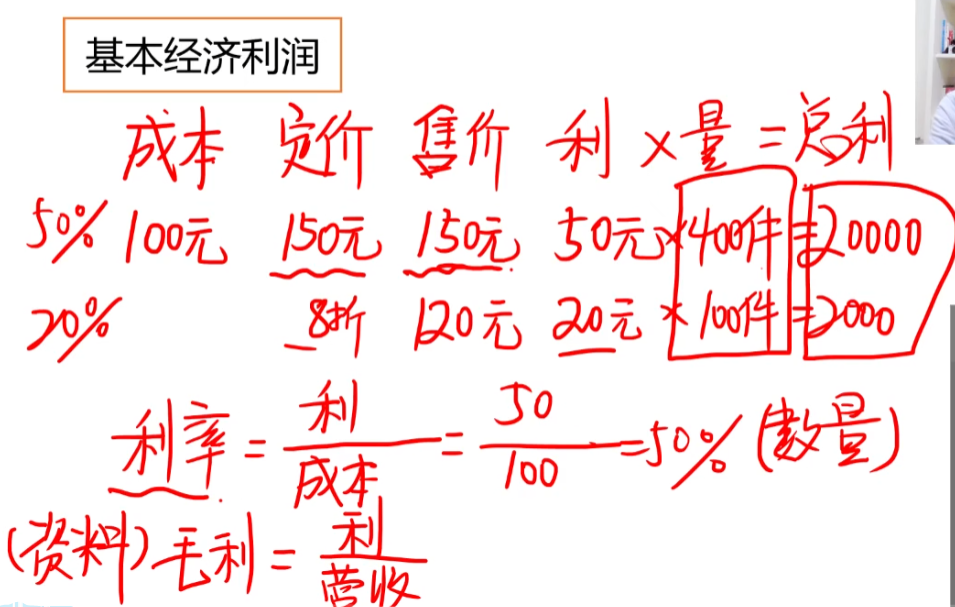 基本经济利润
成本 定价 售价 利 × 量 = 总利
50% 100元 150元 150元 50元 × 400件 = 20000
20% 8折 120元 20元 × 100件 = 2000
利率 = 利/成本 = 50/100 = 50% (数量)
(资料) 毛利 = 利/营收